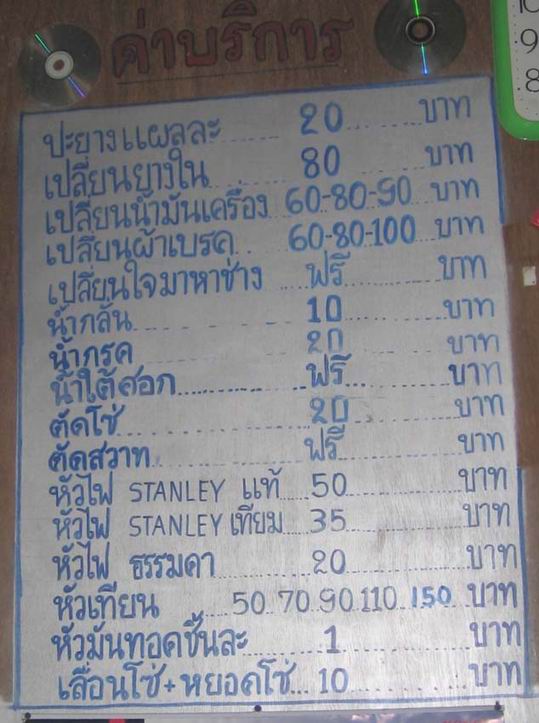 ค่าบริการ
ปะยางแผลละ 20 บาท
เปลี่ยนยางใน 80 บาท
เปลี่ยนน้ำมันเครื่อง 60-80-90 บาท
เปลี่ยนผ้าเบรค 60-80-100 บาท
เปลี่ยนใจมาหาช่าง ฟรี บาท
น้ำกลั่น 10 บาท
น้ำกรด 20 บาท
น้ำใต้ศอก ฟรี บาท
ตัดโซ่ 20 บาท
ตัดสวาท ฟรี บาท
หัวไฟ STANLEY แท้ 50 บาท
หัวไฟ STANLEY เทียม 35 บาท
หัวไฟ ธรรมดา 20 บาท
หัวเทียน 50 70 90 110 150 บาท
หัวมันทอดชิ้นละ 1 บาท
เลื่อนโซ่+หยอดโซ่ 10 บาท
10
9
8